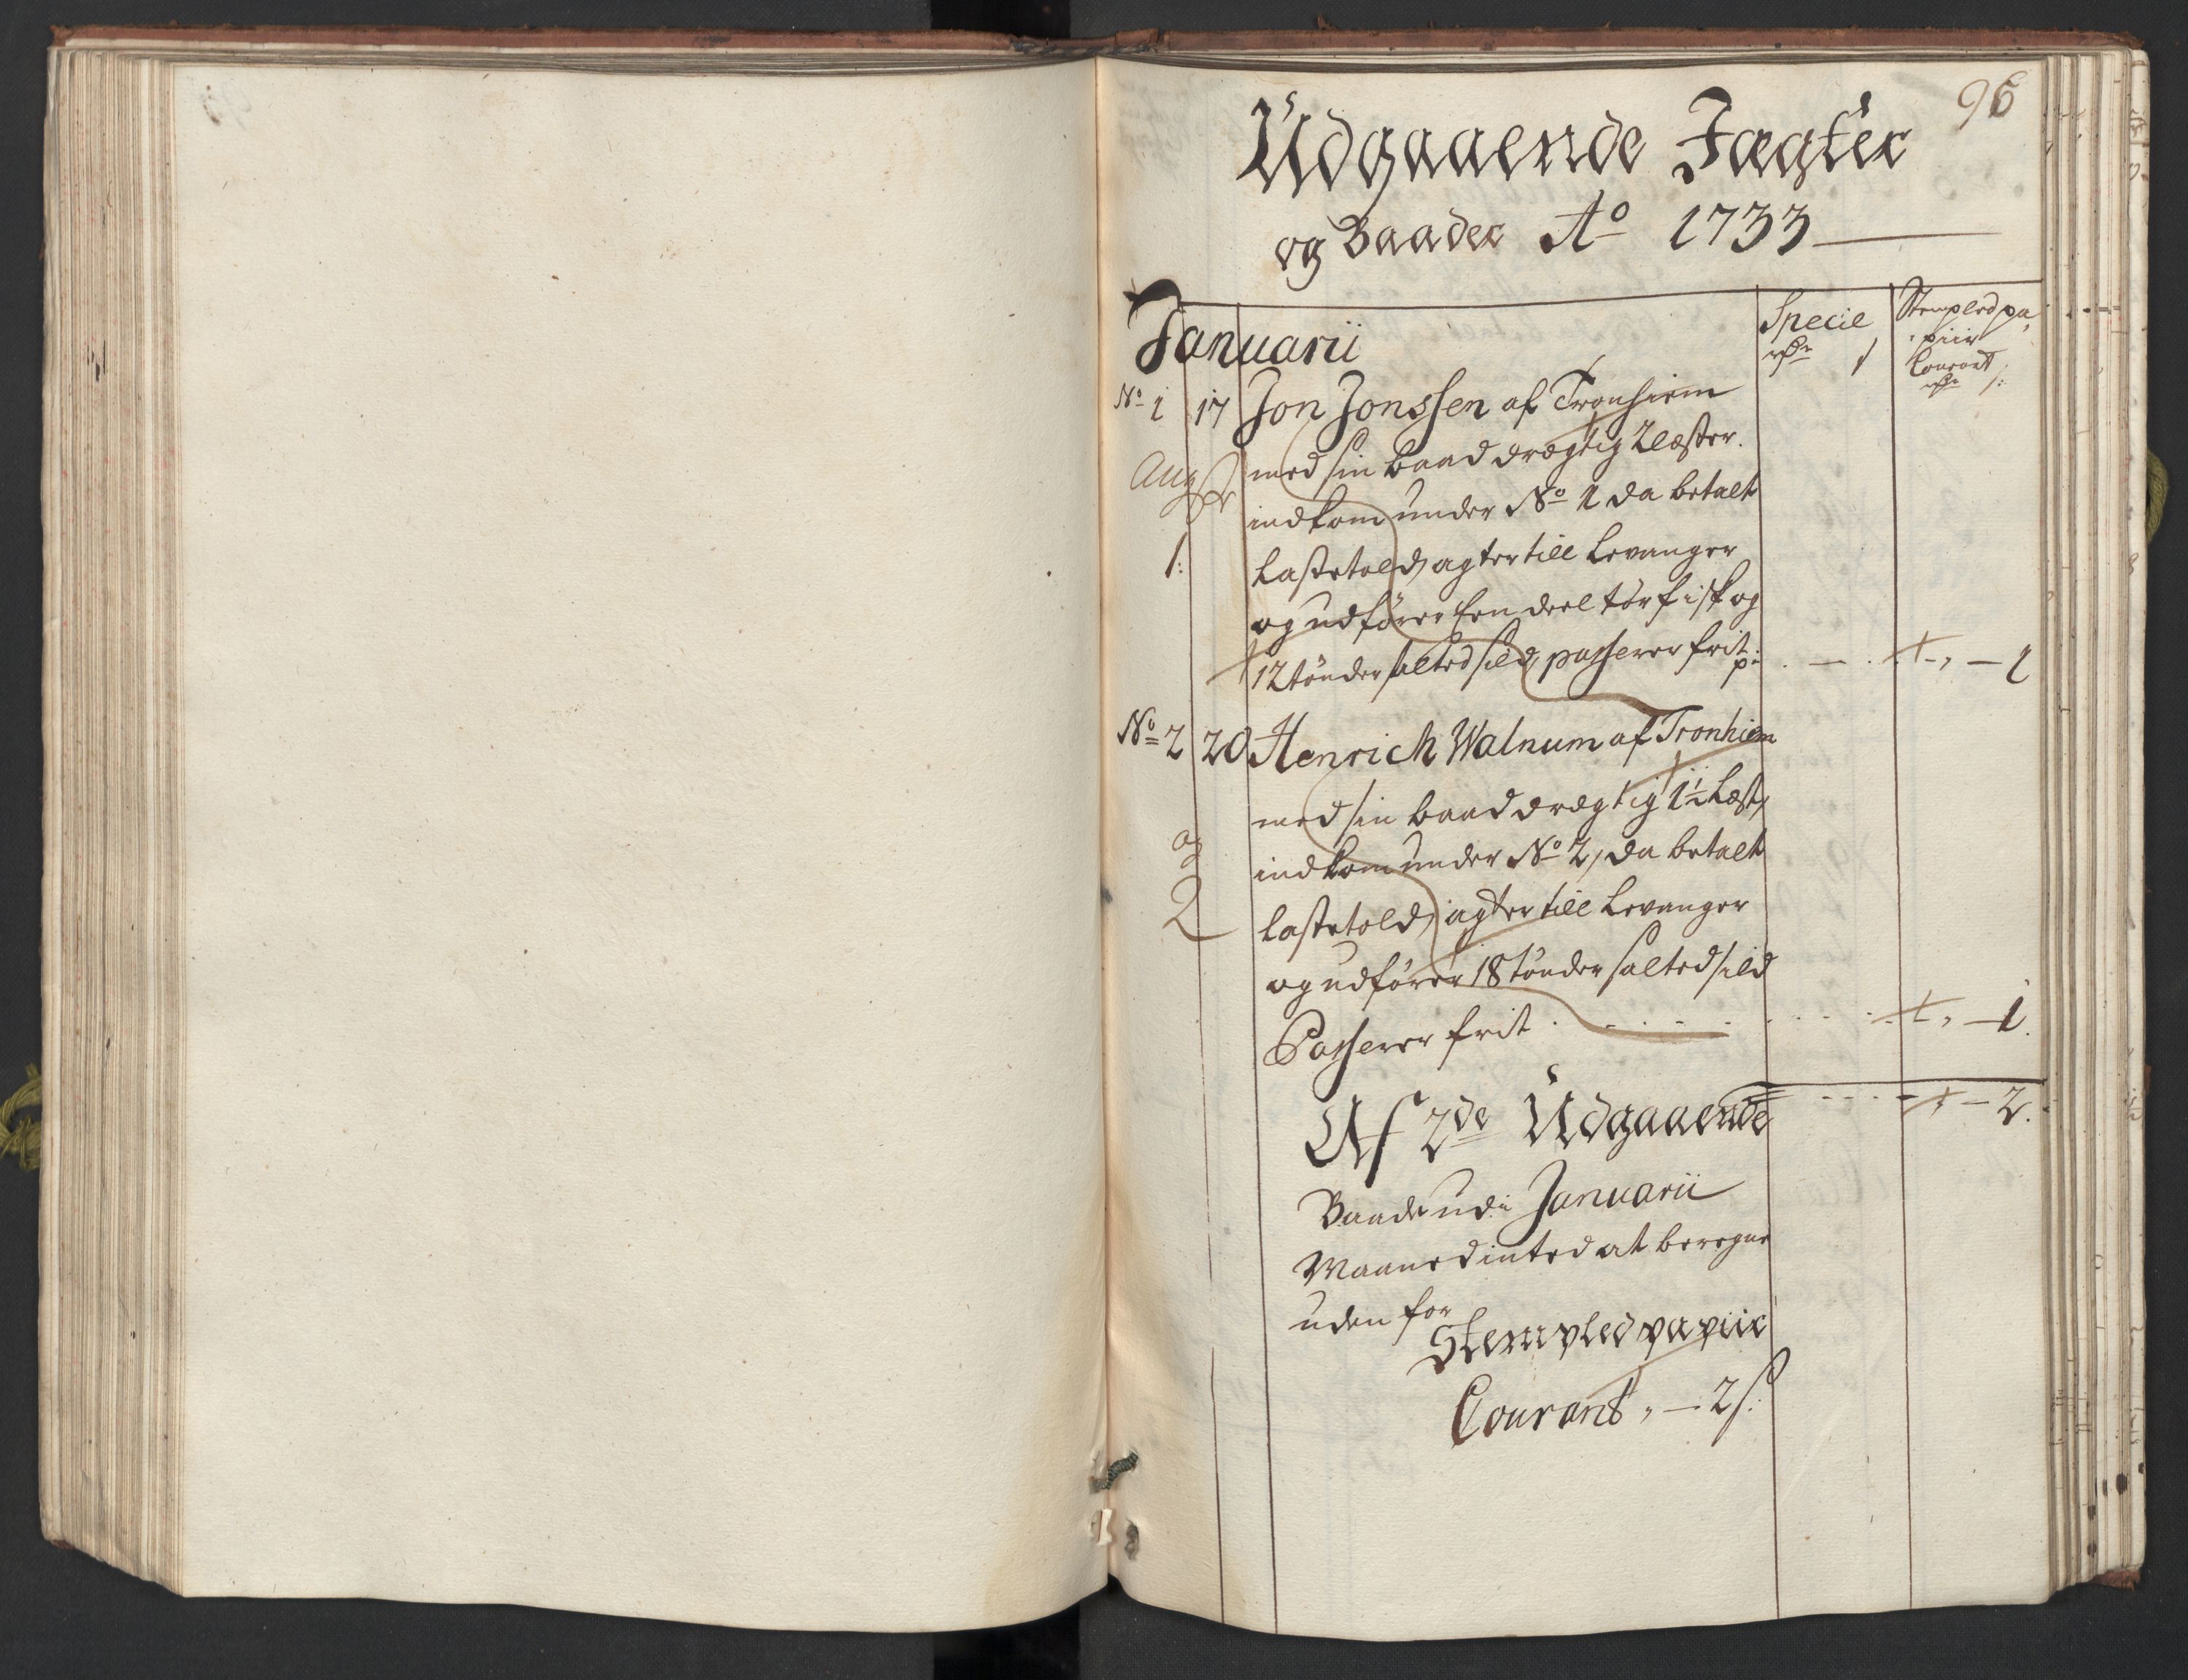 96
Udgaaende Jægter
og Baader Aº 1733
Januarii
Specie
Stempled pa„
piir
Courant
Nº 1 17 Jon Jonssen af Tronhiem
med sin baad drægtig 2 læster.
indkom under Nº 1 da betalt
Lastetold, agter till Levanger
og udfører Een deel tør fisk og
12 tønder salted sild, passerer frit
1:
1
Nº 2 20 Henrich Walnum af Tronhiem
med sin baad drægtig 1½ Læst,
indkom under Nº 2, da betalt
Lastetold, agter till Levanger
og udfører 18 tønder salted sild
Passerer frit
og
2
1
Af 2de Udgaaende
2.
Baade udi Januarii
Maaned inted at beregne
uden for
Stempled papiir
Courant „ — 2 s: